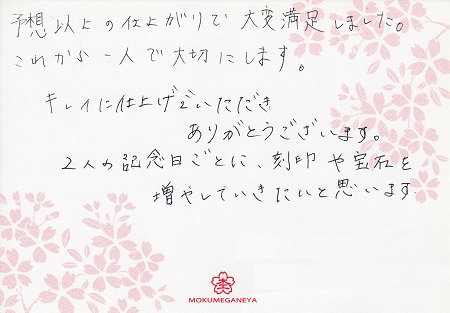 予想以上の仕上がりで大変満足しました。
これから一人で大切にします。
キレイに仕上げていただき
ありがとうございます。
2人の記念日ごとに、刻印や宝石を
増やしていきたいと思います
MOKUMEGANEYA